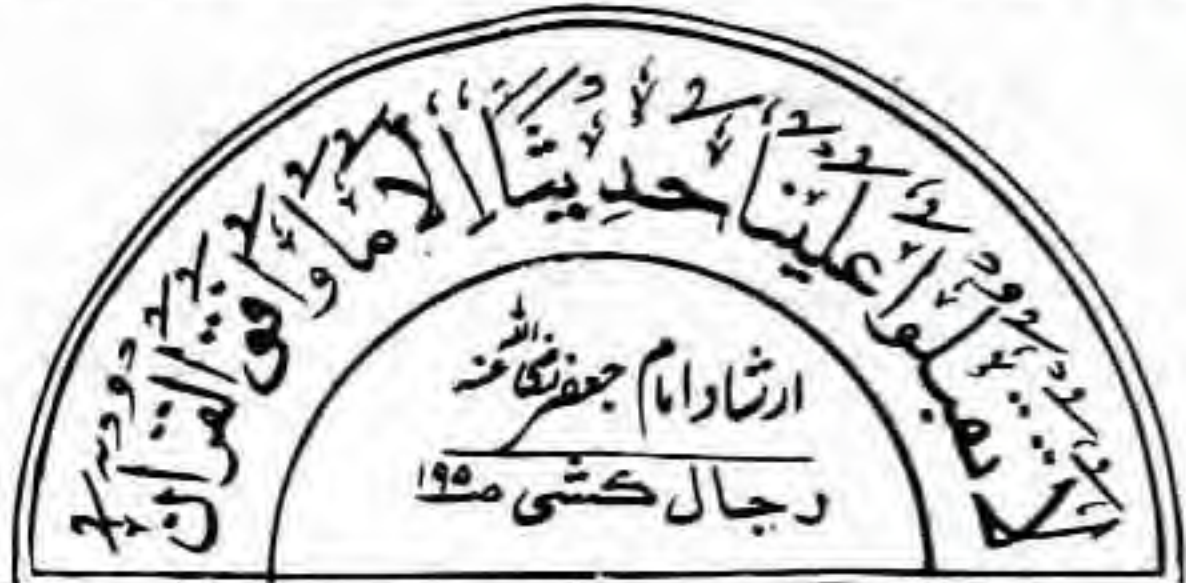 لا تقبلوا علینا حدیثا إلا ما وافق القرآن
ارشاد امام جعفر رضی اللہ عنہ
رجال کشی ص ۱۹۵